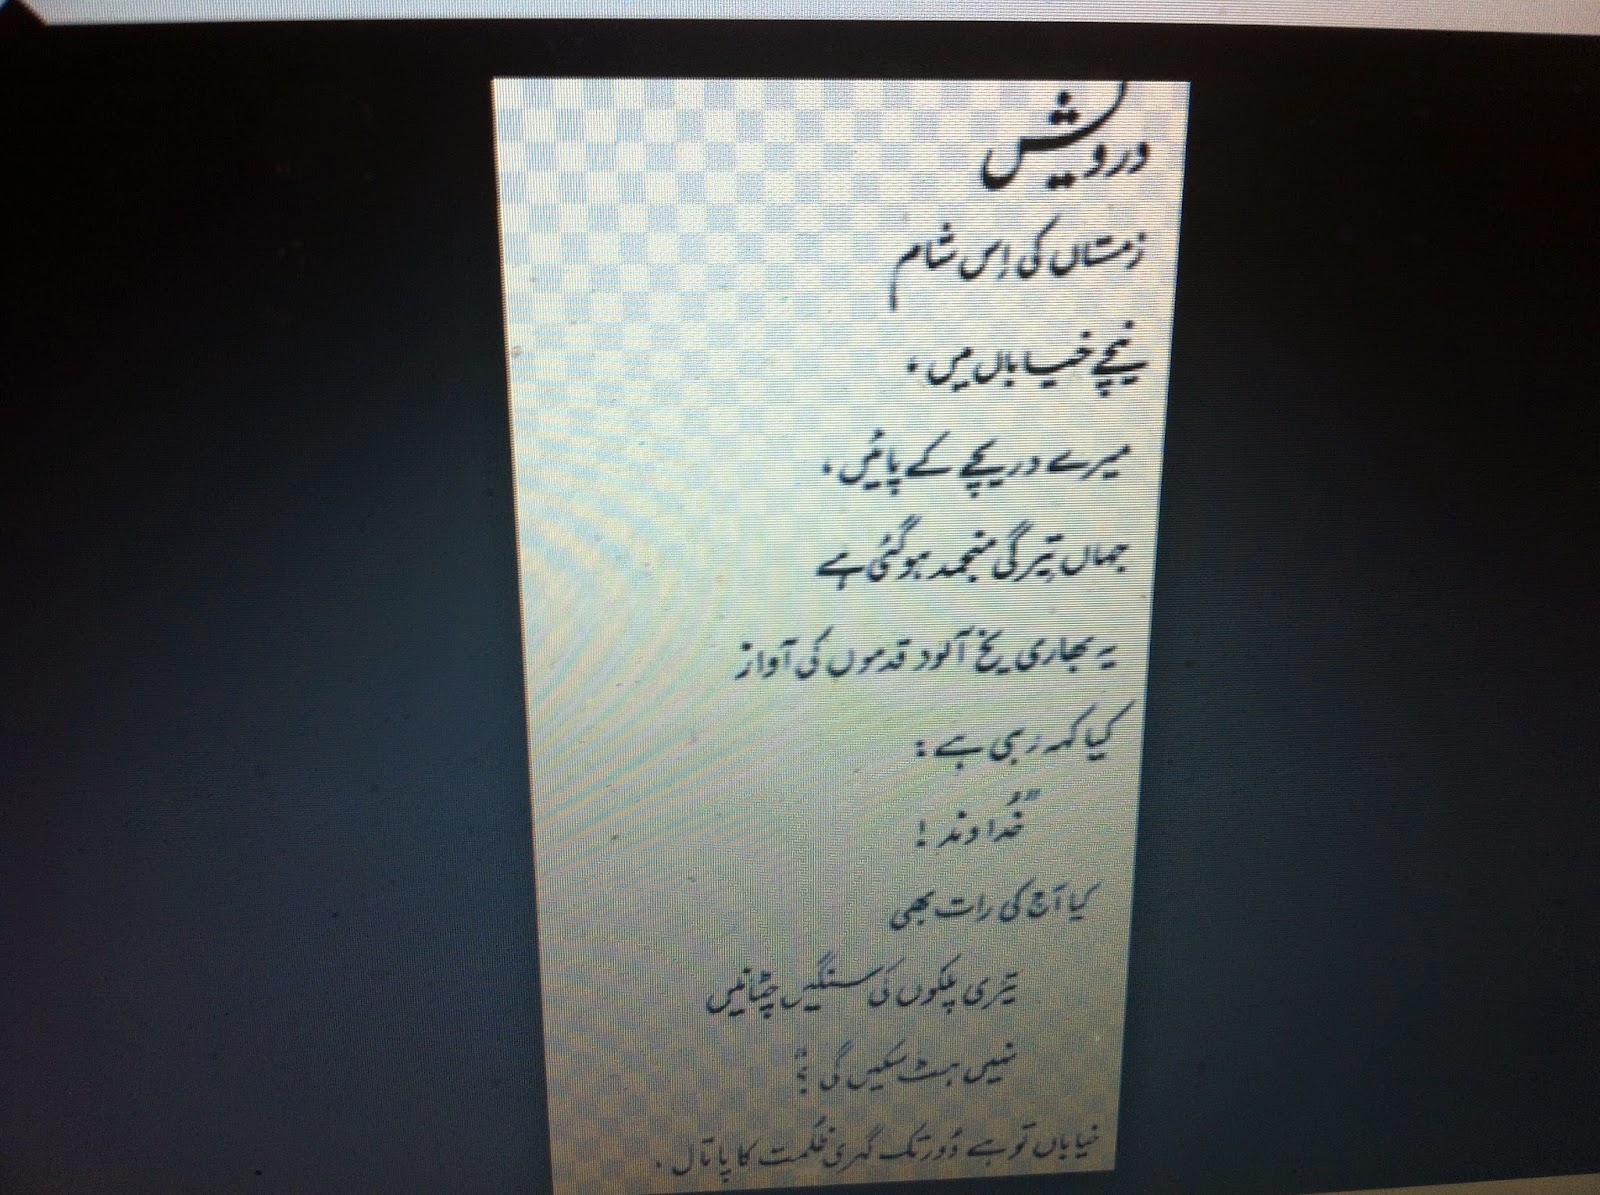 درویش
زمستاں کی اِس شام
نیچے خیاباں میں ،
میرے دریچے کے پائیں ،
جہاں تیرگی منجمد ہو گئی ہے
یہ بھاری یخ آلود قدموں کی آواز
کیا کہہ رہی ہے :
”خُداوند !
کیا آج کی رات بھی
تیری پلکوں کی سنگیں چٹانیں
نہیں ہٹ سکیں گی ؟“
خیاباں تو ہے دُور تک گہری ظُلمت کا پاتال ،